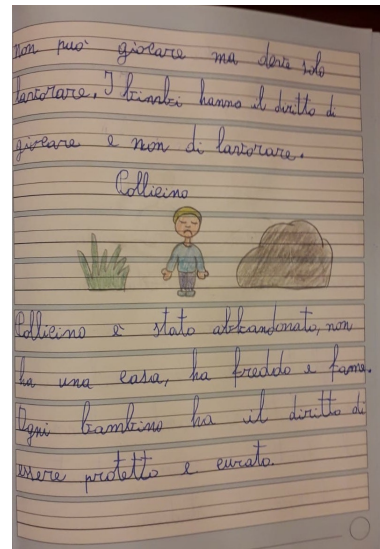 non può giocare ma deve solo
lavorare. I bimbi hanno il diritto di
giocare e non di lavorare.
Pollicino
Pollicino è stato abbandonato, non
ha una casa, ha freddo e fame.
Ogni bambino ha il diritto di
essere protetto e curato.